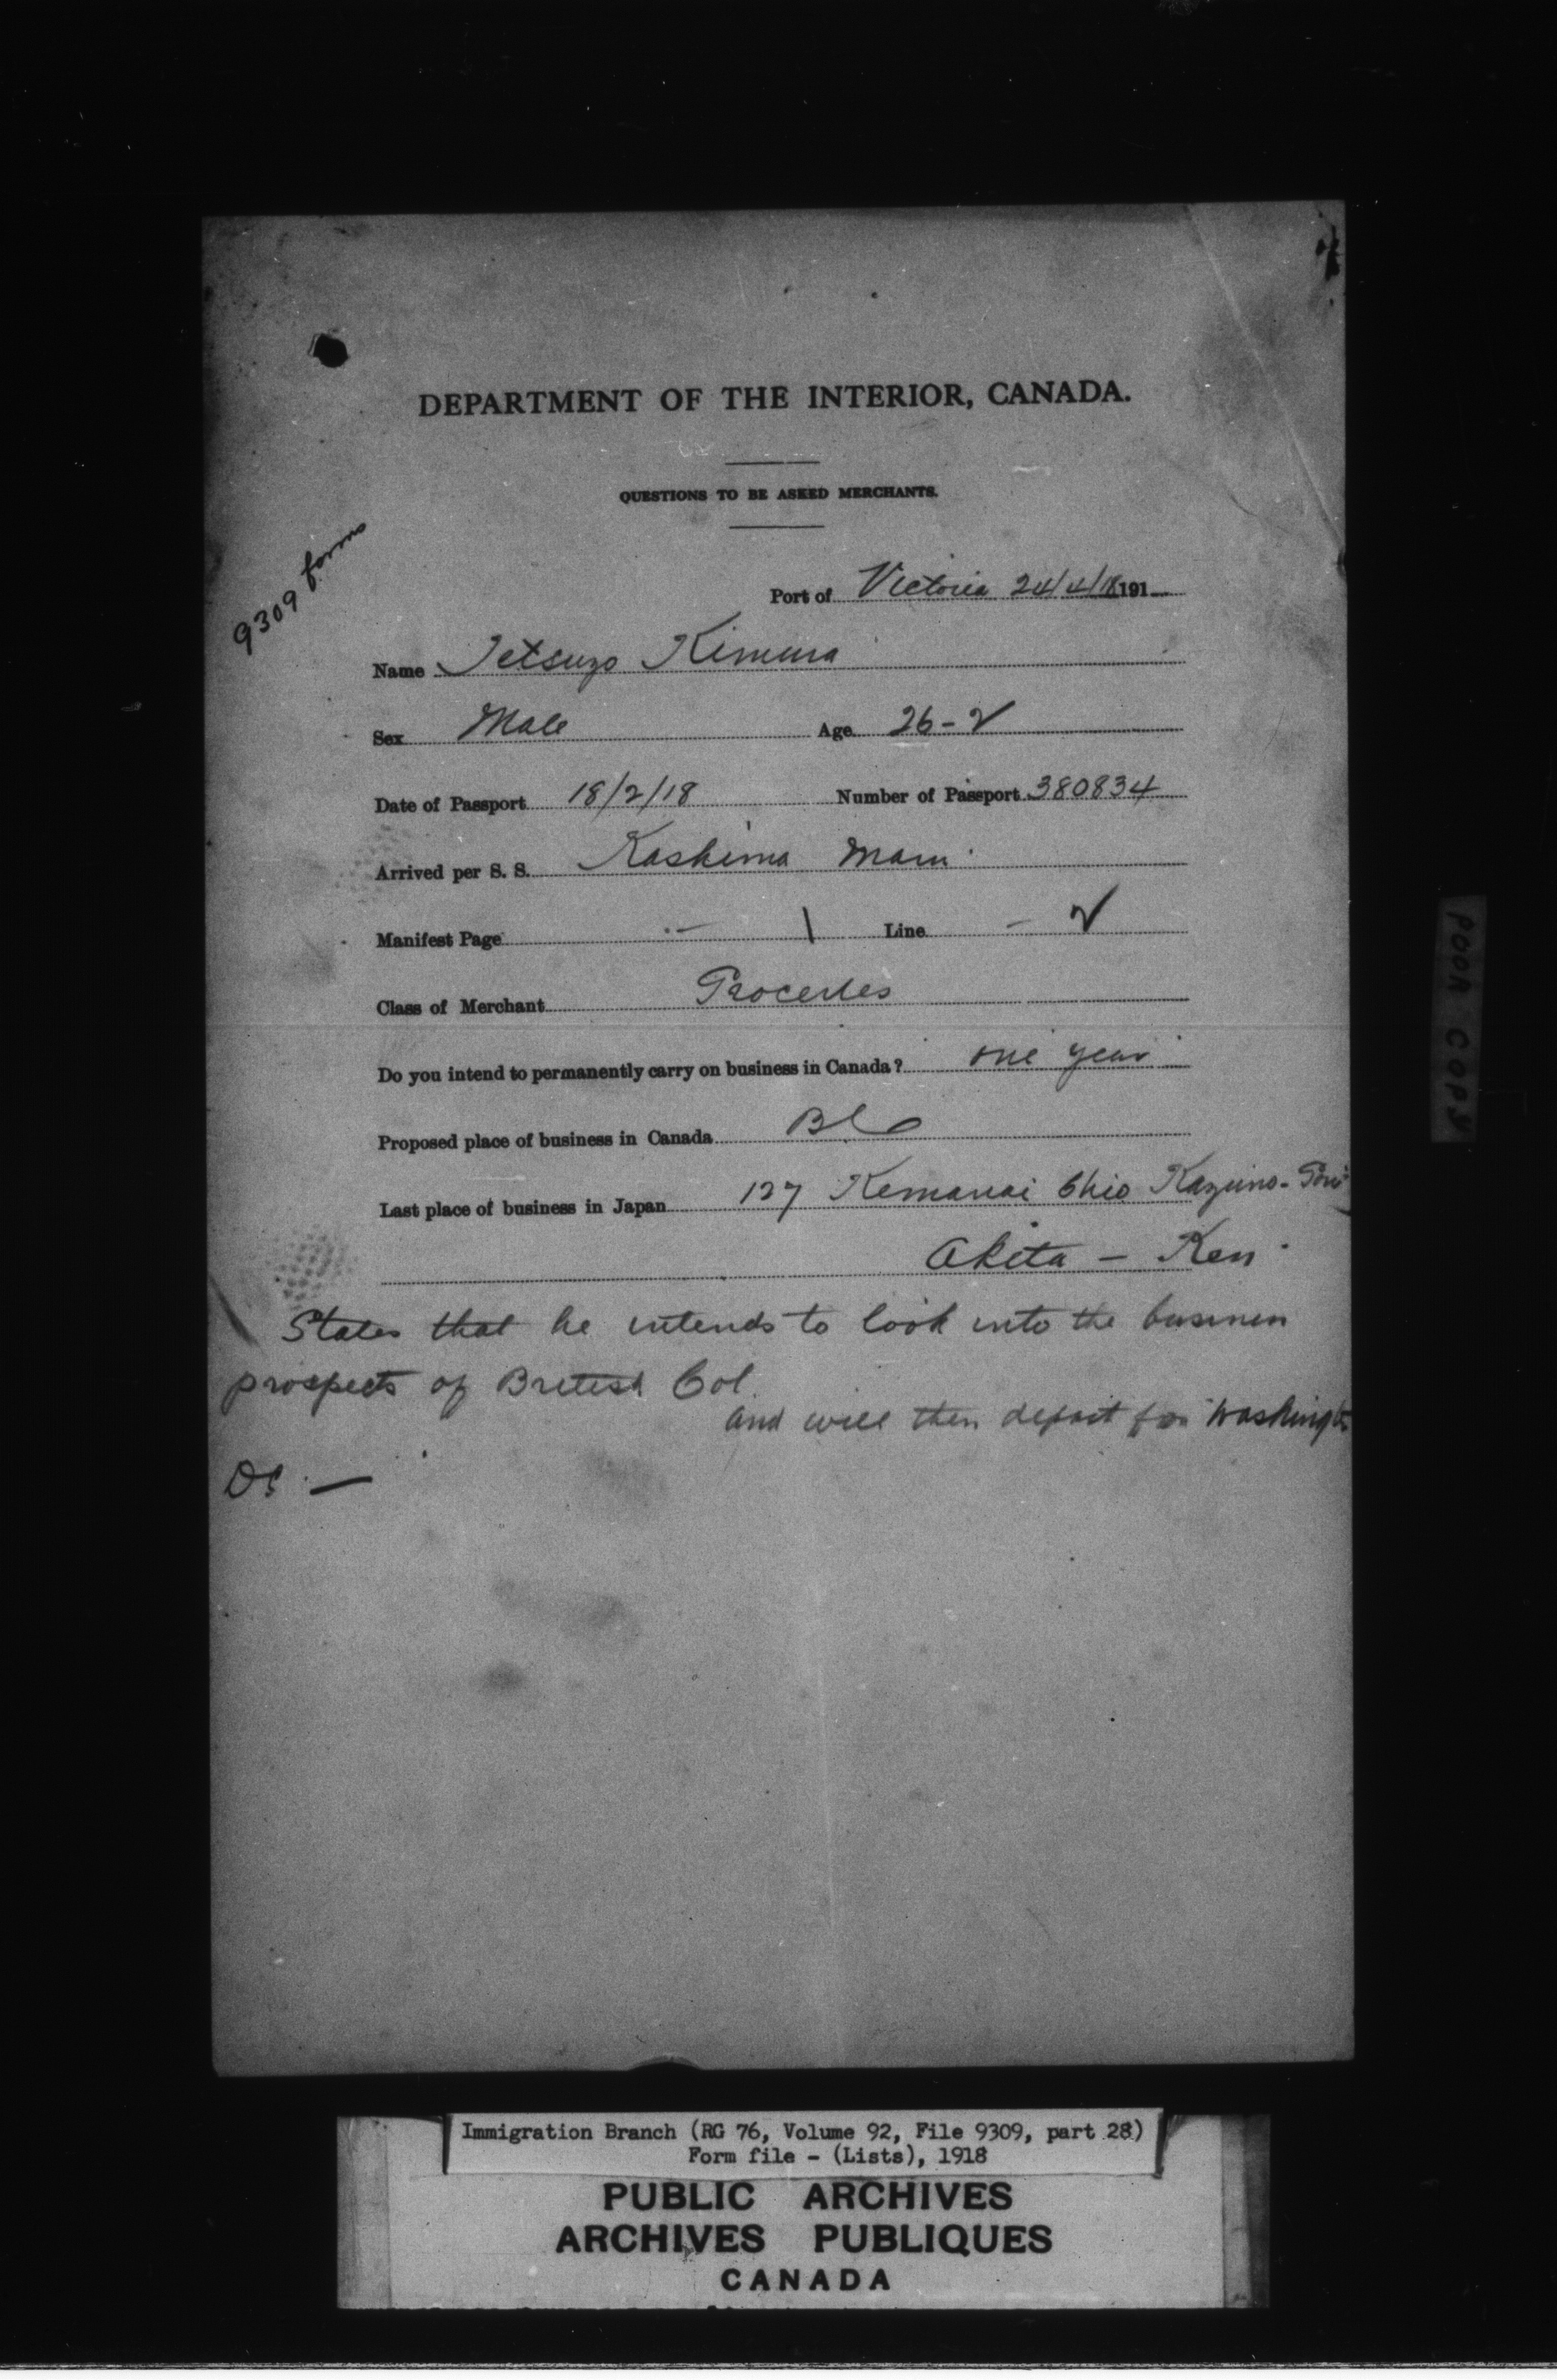 DEPARTMENT OF THE INTERIOR, CANADA.
QUESTIONS TO BE ASKED MERCHANTS.
9309 forms
Port of Victoria 24/4/18 191
Name Tetsuzo Kimura
Sex Male Age 26-2
Date of Passport 18/2/18 Number of Passport 380834
Arrived per S. S. Kashima Maru
Manifest Page 1 Line 2
Class of Merchant Groceries
Do you intend to permanently carry on business in Canada? one year
Proposed place of business in Canada BC
Last place of business in Japan 127 Kemanai Chio Kazuno-
Akita - Ken
States that he intends to look into the business
prospects of British Col.
and will then depart for Washington
DC -
POOR COPY
Immigration Branch (RG 76, Volume 92, File 9309, part 28)
Form file - (Lists), 1918
PUBLIC ARCHIVES
ARCHIVES PUBLIQUES
CANADA